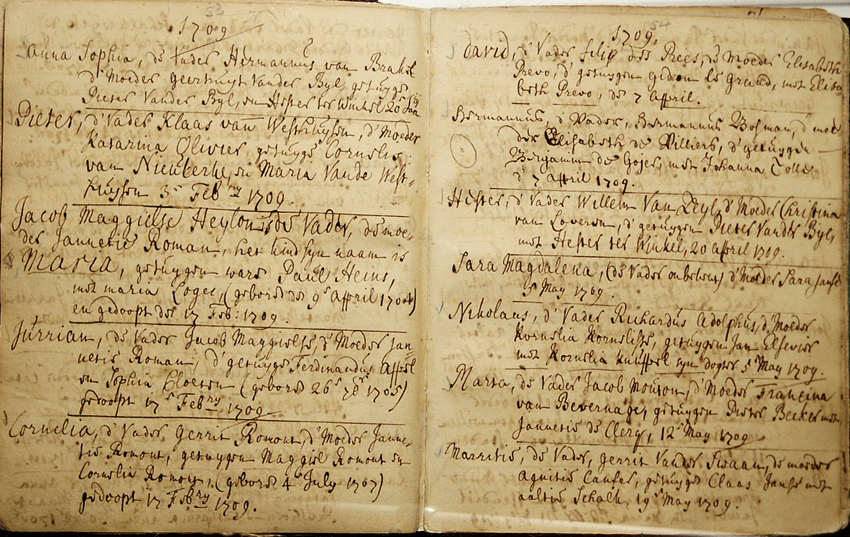 53
1709
Anna Sophia, de Vader Hermannus van Brakel
d'Moeder geertruijt Vander Byl, getuyge
Pieter Vander Byl, en Hester ter Winkel 20 Jan
Pieter, d'Vader Klaas van Westhuysen, d'Moeder
Katarina Olivier, getuyge Cornelis
van Nieukerke, en Maria Vande West-
huysen 3 Febry 1709.
Jacob Maggielse Heylon de Vader, de moe-
der Jannetie Roman, het kind syn naam is
Maria, getuygen ware Paul Heins,
met maria Loges, (geboren den 9 affril 1704)
en gedoopt den 17 Feb: 1709.
Jurrian, de Vader Jacob Maggielse, d'Moeder Jan
netie Roman, d'getuyge Ferdinandus Appel
en Sophia Cloeten (geboren 26 1705)
gedoopt 17 Febry 1709
Cornelia, d'Vader Gerrit Romont, d'Moeder Janne-
tie Romont, getuygen Maggiel Romont en
Cornelia Romont, (geboren 4 July 1707)
gedoopt 17 Febry 1709.
54
1709.
David, d'Vader filip des Prees, de Moeder Elisabeth
Prevo, d'getuygen gedeon le grand, met Elisa
beth Prevo, de 7 affril.
Hermannus, d'Vader, Hermannus Bosman, d'moe
der Elisabeth de Villiers, d'getuygen
met Johanna
d'7 affril 1709.
Hester, d'Vader Willem Van Zeyl, d'Moeder Christina
van Loveren, d'getuygen Pieter Vander Byl,
met Hester ter Winkel, 20 affril 1709.
Sara Magdalena, (de Vader onbekent) d'Moeder Sara Janse
5 May 1709.
Nikolaus, d'Vader Richardus Adolphus, d'Moeder
Kornelia Kornelisse, getuygen Jan Elsevier
met Kornelia syn dogter 5 May 1709.
Marta, de Vader Jacob Mouton, d'Moeder Francina
van Bevernage, getuygen Pieter Becker met
Jannetie de Clerq, 12 May 1709
de Vader, gerrit Vander Swaan, de moeder
getuyge Claas Janse met
Aaltie Schalk, 19 May 1709.